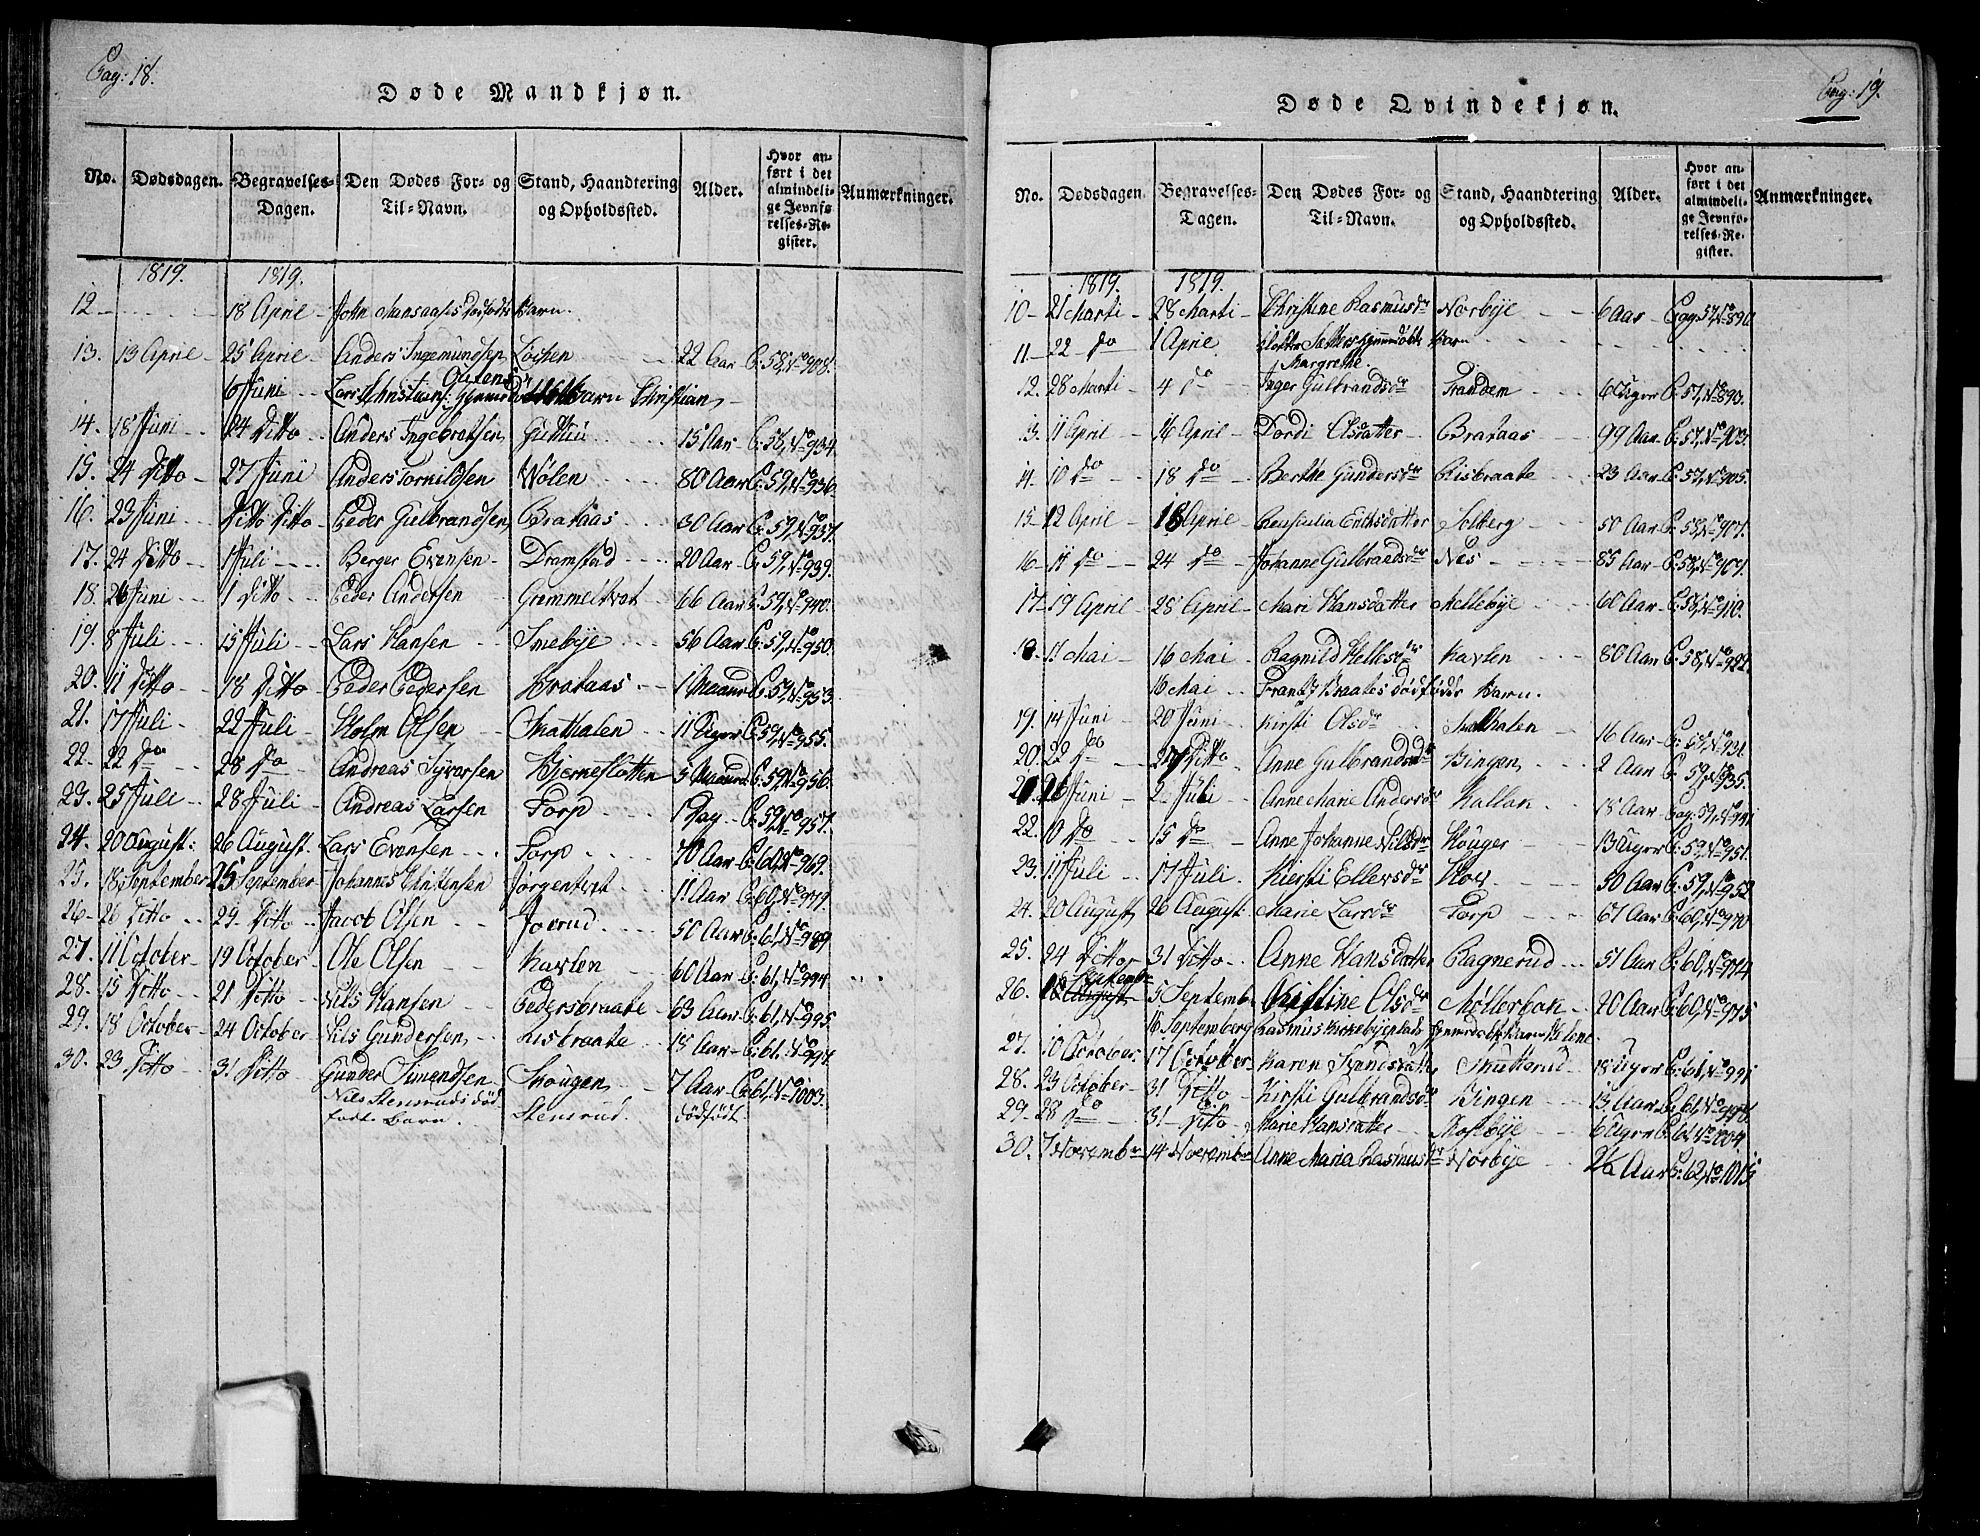 Pag: 18.
Døde Mandkjøn.
No. Dødsdagen. Begravelses-Dagen. Den Dødes For- og Til-Navn. Stand, Haandtering og Opholdssted. Alder. Hvor anført i det almindelige Jevnførelses-Register. Anmærkninger.
1819. 1819.
12 - 18 April - John Mansaases dødfødte Barn.
13. 13 April - 25 April - Anders Ingemundsen Løchen - 22 Aar P: 58, No 908.
6 Juni - Lars Christians: Gutens Hjemmedøbt Barn Christian -
14. 18 Juni - 24 Ditto - Anders Ingebretsen Gudim - 15 Aar P: 58, No 934.
15. 24 Ditto - 27 Juni Anders Tornildsen Wølen - 80 Aar P: 59, No 936.
16. 23 Juni - Ditto Ditto - Peder Gulbrandsen Brataas - 30 Aar P: 59, No 937.
17. 24 Ditto - 1 Juli - Berger Evensen - Dramstad - 20 Aar P: 59, No 939.
18. 26 Juni - 1 Ditto - Peder Andersen Grimmeltvet - 66 Aar P: 59, No 940.
19. 8 Juli - 15 Juli - Lars Hansen - Smebye - 56 Aar P: 59, No 950.
20. 11 Ditto - 18 Ditto - Peder Pedersen Brataas - 1 Maaned P: 59, No 953.
21. 17 Juli - 22 Juli - Holm Olsen - Mathalen - 11 Uger P: 59, No 955.
22. 22 Do - 28 Do - Andreas Syversen Bjerneslotten 5 Maaned P: 59, No 956.
23. 25 Juli - 28 Juli - Andreas Larsen Torp - 1 Dag - P: 59, No 957.
24. 20 August: 26 August. Lars Evensen - Torp - 70 Aar P: 60, No 969.
25. 18 September 25 September Johannes Christensen Jørgentvet - 11 Aar P: 60, No 979.
26 - 26 Ditto - 29. Ditto - Jacob Olsen - Joerud - 50 Aar P: 61, No 989.
27. 11 October - 19 October - Ole Olsen - Kavlen - 60 Aar P: 61, No 994.
28. 15 Ditto - 21 Ditto - Nils Hansen - Pedersbraate - 63 Aar P: 61, No 995.
29. 18 October - 24 October - Nils Gundersen - Risbraate - 18 Aar P: 61, No 997.
30. 23 Ditto - 31 Ditto - Gunder Simensen Skougen - 7 Aar P: 61, No 1003.
Nils Stensruds død
fødte Barn. Stensrud. dødfødt.
Pag: 19.
Døde Qvindekjøn.
No. Dødsdagen Begravelses-Tagen. Den Dødes For- og Til-Navn. Stand, Haandtering og Opholdssted. Alder. Hvor anført i det almindelige Jevnførelses-Register. Anmærkninger.
1819. 1819.
10 - 21 Marti - 28 Marti - Christine Rasmusdr Nørbye - 6 Aar - Pag. 57, No 890
11 - 22 Do 1 April Sætters hjemmedøbte Barn
Margrethe.
12. 28 Marti - 4 Do - Inger Gulbrandsdr Trandem - 6 Uger P: 57, No 890.
13. 11 April - 16 April - Dordi Olsdatter - Brataas - 99 Aar P: 57, No 903.
14. 10 Do - 18 Do - Berthe Gundersdr Risbraate - 23 Aar P: 57, No 905.
15. 12 April - 18 April - Eriksdatter Solberg - 50 Aar P: 58, No 907.
16 - 11 Do - 24 Do - Johanne Gulbrandsdr Nes - 85 Aar P: 58, No 909.
17 - 19 April - 28 April - Mari Hansdatter Mellebye - 60 Aar P: 58, No 910.
18. 11 Mai - 16 Mai - Ragnild Hellesdr Kavlen - 80 Aar P: 58, No 922.
16 Mai - Frants Braates dødfødde Barn.
19. 14 Juni - 20 Juni - Kirsti Olsdr Mathalen - 16 Aar P: 58, No 931.
20. 22 Do - 27 Ditto - Anne Gulbrandsdr Bingen - 2 Aar P: 59, No 935.
21. 26 Juni - 2 Juli - Anne Marie Andersdr Kallak - 18 Aar Pag: 59, No 941
22. 10 Do - 15 Do - Anne Johanne Nilsdr Skouger - 13 Uger P: 59, No 951.
23. 11 Juli - 17 Juli - Kiersti Ellersdr Hoes - 50 Aar P: 59, No 952
24. 20 August 26 August. Marie Larsdr Torp - 67 Aar P: 60, No 970
25. 24 Ditto - 31 Ditto - Anne Hansdatter Ragnerud - 51 Aar P: 60, No 974
26. August September 5 Septembr Kristine Olsdr Møllerbak - 20 Aar P: 60, No 975
16 September Rasmus Kirkebyeplads hjemmedøbt Barn Helene.
27. 10 October 17 October Karen Svendsdatter Skutterud - 18 Uger P: 61, No 991
28. 23 October - 31 Ditto - Kirsti Gulbrandsdr Bingen - 13 Aar P: 61, No 998.
29 - 28 Do - 31 Ditto - Marie Hansdatter - Mosebye - 6 Uger P: 61, No 1004.
30. 7 Novembr 14 Novembr Anne Maria Rasmusdr Nørbye - 26 Aar P: 62, No 1015